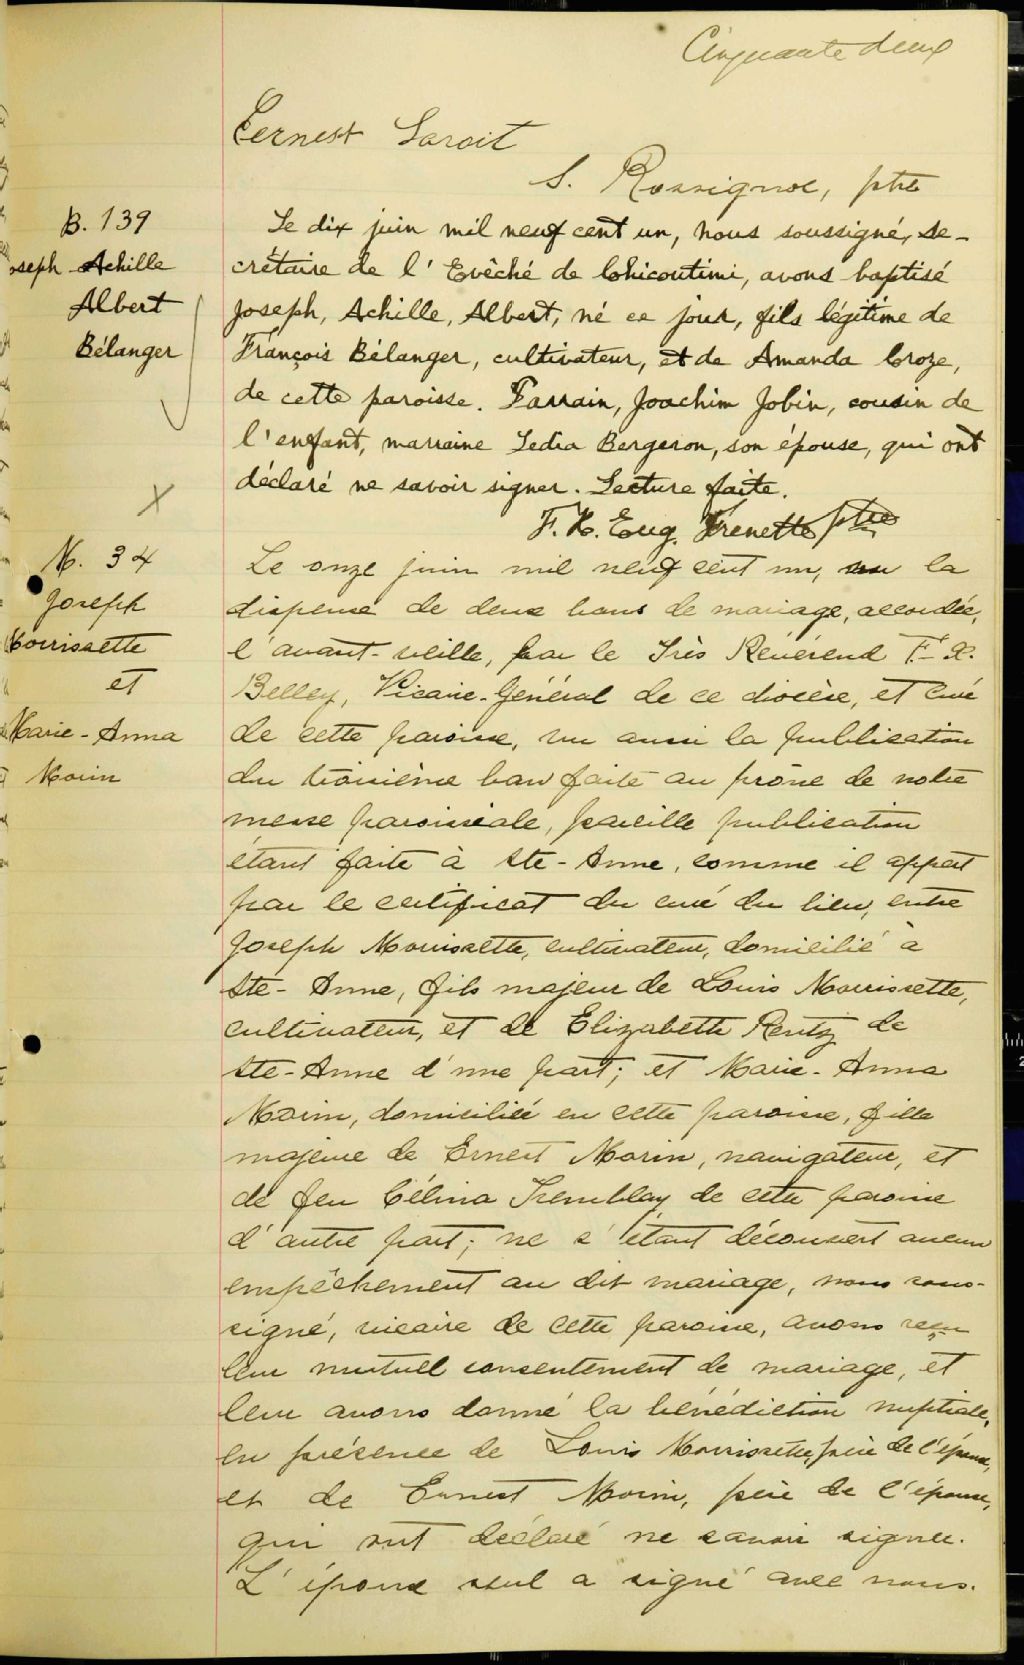 Cinquante deux
Ernest Laroit
S. Rossignol, ptre
B. 139
oseph Achille
Albert
Bélanger
Le dix juin mil neuf cent un, nous soussigné, se-
crétaire de l'Evêché de Chicoutimi, avons baptisé
Joseph, Achille, Albert, né ce jour, fils légitime de
François Bélanger, cultivateur, et de Amanda Croze,
de cette paroisse. Parrain, Joachim Jobin, cousin de
l'enfant, marraine Ledia Bergeron, son épouse, qui ont
déclaré ne savoir signer. Lecture faite.
F. X. Eug. Frenette ptre
M. 34
Joseph
Morrissette
et
Marie-Anna
Morin
Le onze juin mil neuf cent un, vu la
dispense de deux bans de mariage, accordée,
l'avant-veille, par le Très Révérend F.-X.
Belley, Vicaire-Général de ce diocèse, et curé
de cette paroisse, vu aussi la publication
du troisième ban faite au prône de notre
messe paroissiale, pareille publication
étant faite à Ste-Anne, comme il appert
par le certificat du curé du lieu, entre
Joseph Morrissette, cultivateur, domicilié à
Ste-Anne, fils majeur de Louis Morrissette,
cultivateur, et de Elizabeth Rentz de
Ste-Anne d'une part; et Marie-Anna
Morin, domiciliée en cette paroisse, fille
majeure de Ernest Morin, navigateur, et
de feu Célina Tremblay de cette paroisse
d'autre part; ne s'étant découvert aucun
empêchement au dit mariage, nous sous-
signé, vicaire de cette paroisse, avons reçu
leur mutuel consentement de mariage, et
leur avons donné la bénédiction nuptiale,
en présence de Louis Morrissette, père de l'époux,
et de Ernest Morin, père de l'épouse,
qui ont déclaré ne savoir signer.
L'époux seul a signé avec nous.